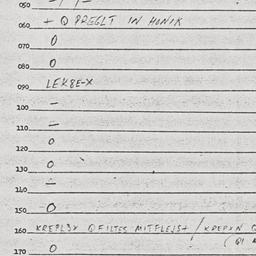 050 - / / -
060 + Q PREGLT IN HONIK
070 0
080 0
090 LEK8E-X
100 -
110 -
120 0
130 0
140 -
150 0
160 KREPL3X Q FILTES MITFLEJS+ / KREPXN Q
( QI
170 0